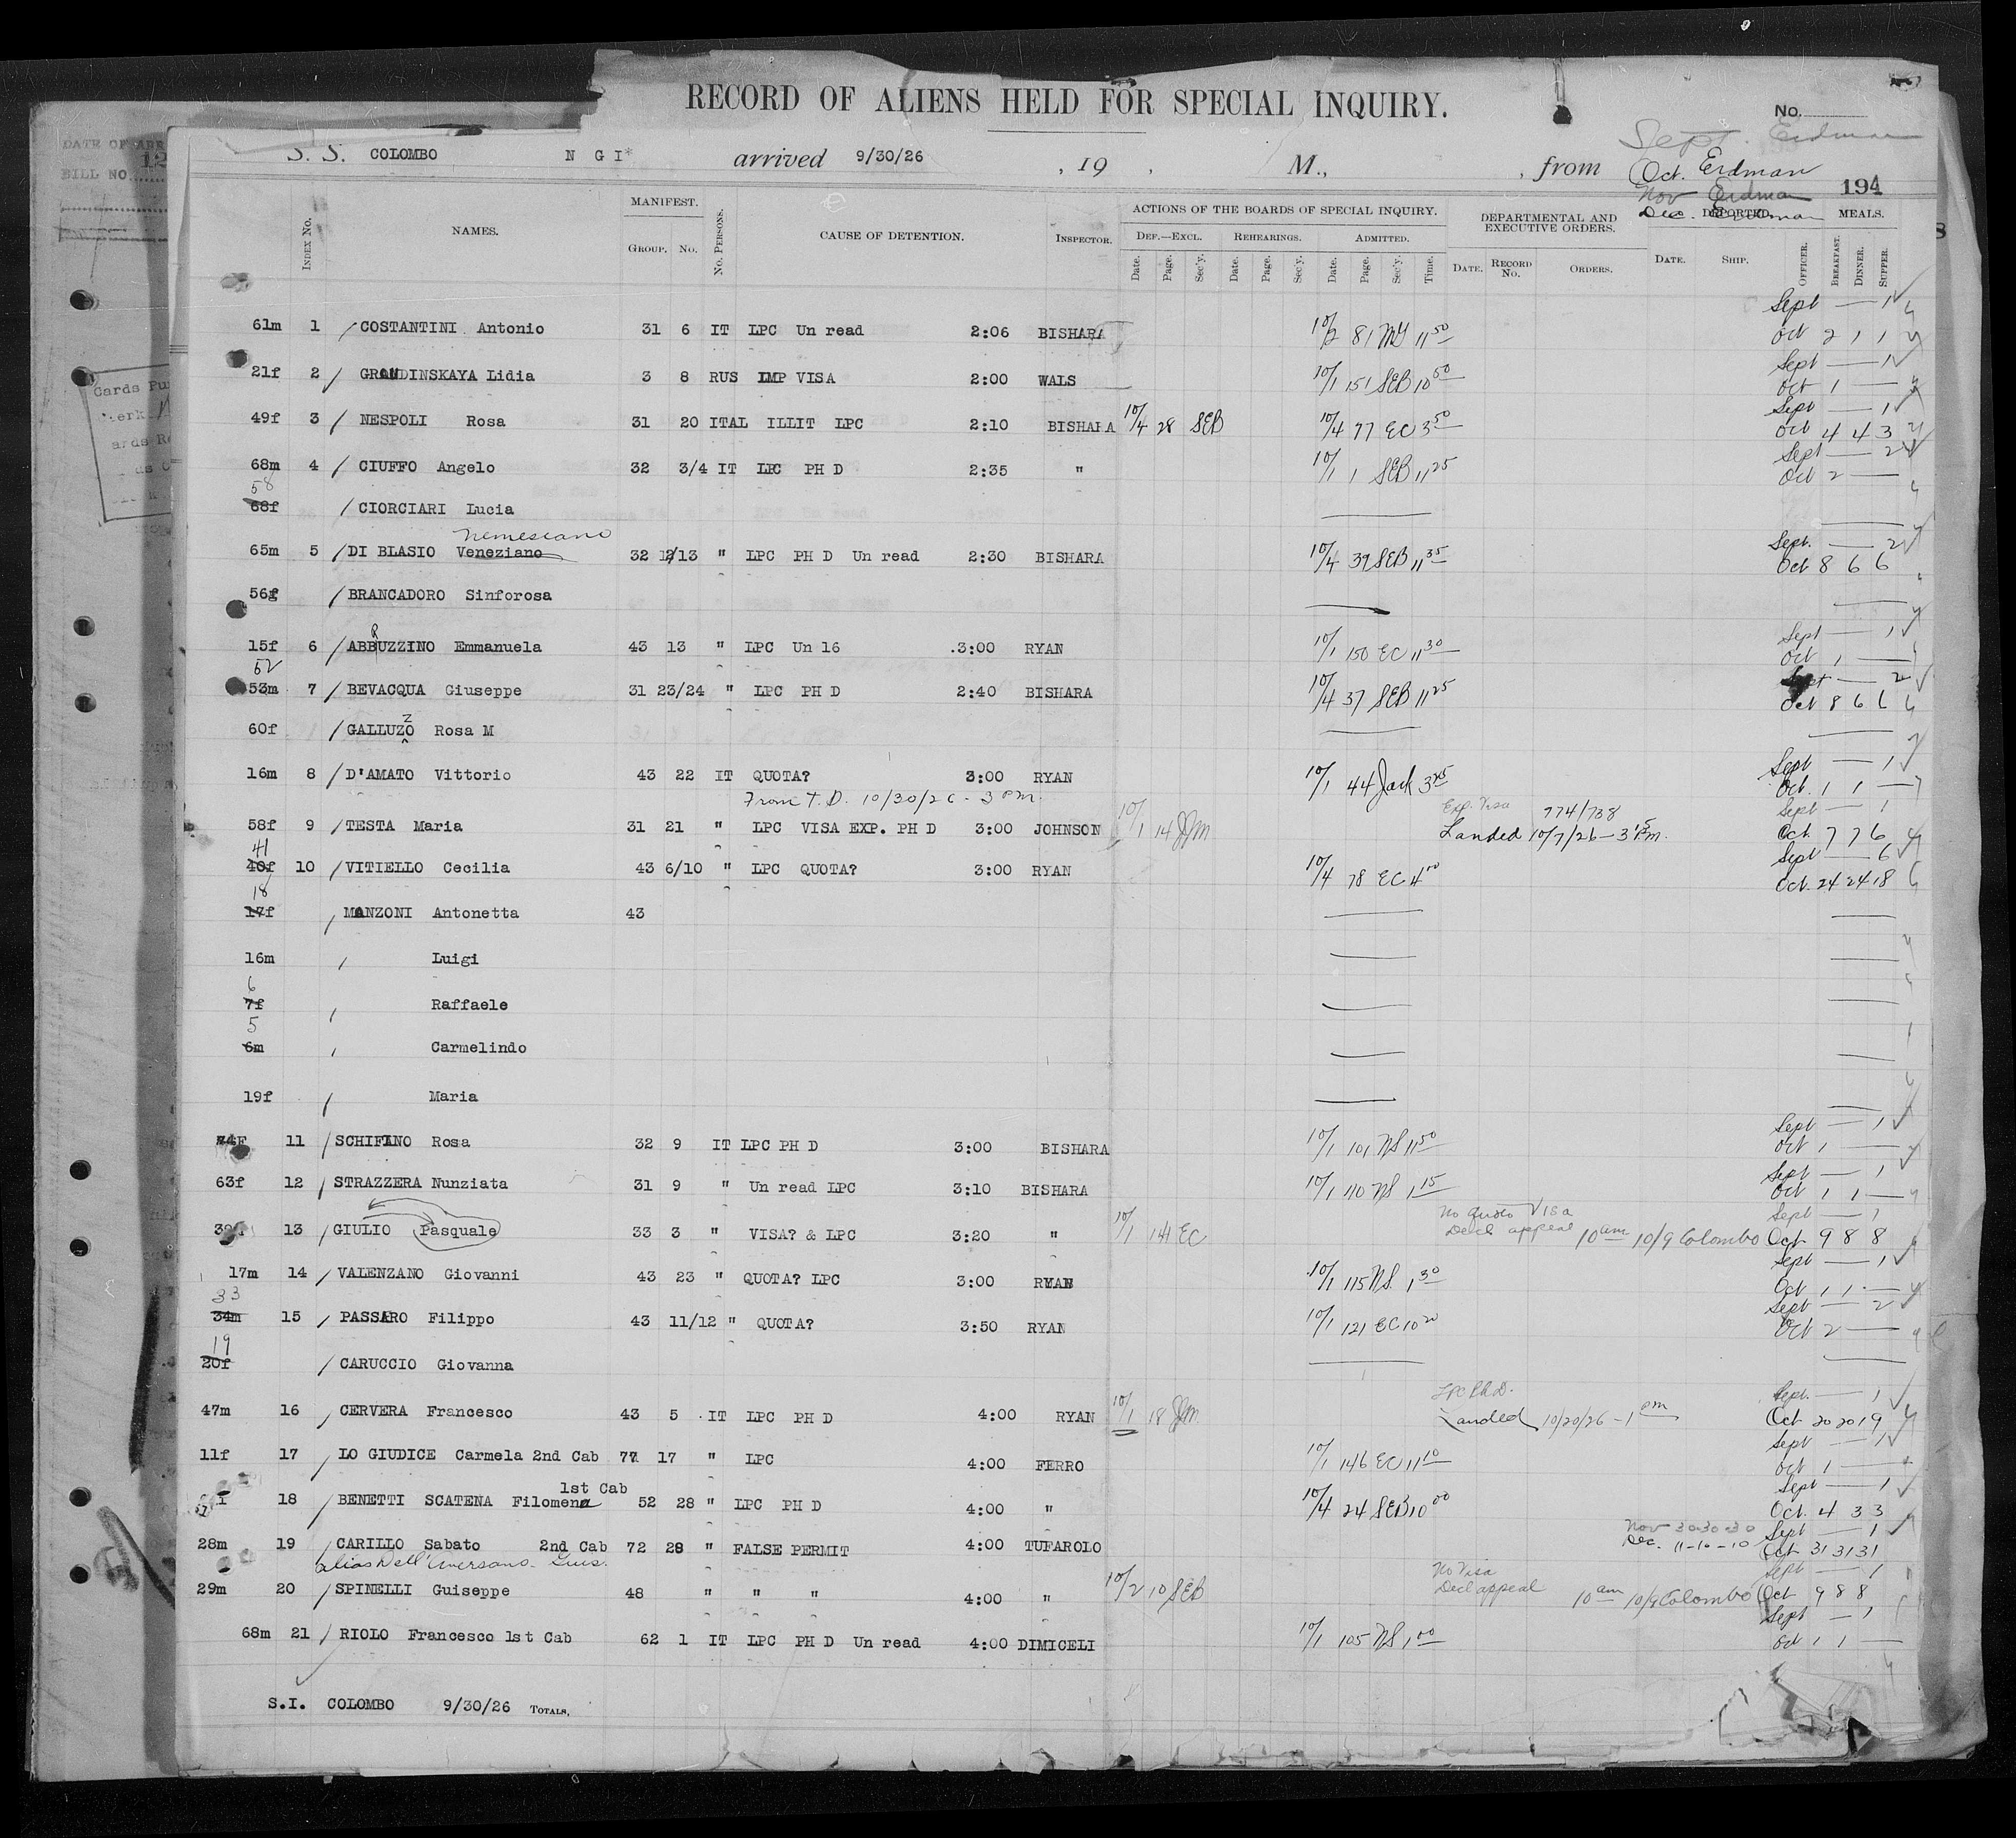 RECORD OF ALIENS HELD FOR SPECIAL INQUIRY.
No.
Sept. Erdman
S. S. COLOMBO N G I* arrived 9/30/26 , 19 , M., , from Oct. Erdman
Nov Erdman 194
Dec. Erdman
DATE OF ARR
12
BILL NO.
INDEX No. NAMES. MANIFEST. GROUP. No. No. PERSONS. CAUSE OF DETENTION. INSPECTOR. ACTIONS OF THE BOARDS OF SPECIAL INQUIRY. DEPARTMENTAL AND EXECUTIVE ORDERS. DEPORTED. MEALS.
DEF.—EXCL. REHEARINGS. ADMITTED.
Date. Page. Sec'y. Date. Page. Sec'y. Date. Page. Sec'y. Time. DATE. RECORD No. ORDERS. DATE. SHIP. OFFICER. BREAKFAST. DINNER. SUPPER.
Sept — 1
61m 1 / COSTANTINI Antonio 31 6 IT LPC Un read 2:06 BISHARA 10/2 81 MY 11 50 Oct 2 1 1
Sept — 1
21f 2 / GRAUDINSKAYA Lidia 3 8 RUS IMP VISA 2:00 WALS 10/1 151 SEB 10 50 Oct 1 —
Sept — 1
49f 3 / NESPOLI Rosa 31 20 ITAL ILLIT LPC 2:10 BISHARA 10/4 28 SEB 10/4 77 EC 3 50 Oct 4 4 3
Sept — 2
68m 4 / CIUFFO Angelo 32 3/4 IT LPC PH D 2:35 " 10/1 1 SEB 11 25 Oct 2 —
58
68f / CIORCIARI Lucia
Nemesiano
Sept. — 2
65m 5 / DI BLASIO Veneziano 32 12/13 " LPC PH D Un read 2:30 BISHARA 10/4 39 SEB 11 35 Oct 8 6 6
56f / BRANCADORO Sinforosa
Sept — 1
15f 6 / ABBUZZINO Emmanuela 43 13 " LPC Un 16 3:00 RYAN 10/1 150 EC 11 30 Oct 1 —
52
Sept — 2
53m 7 / BEVACQUA Giuseppe 31 23/24 " LPC PH D 2:40 BISHARA 10/4 37 SEB 11 25 Oct 8 6 6
60f / GALLUZO Rosa M
z
Sept — 1
16m 8 / D'AMATO Vittorio 43 22 IT QUOTA? 3:00 RYAN 10/1 44 Jack 3 45 Oct. 1 1 —
From T.D. 10/30/26 - 3 P.M.
Exp. Visa 774/738 Sept — 1
58f 9 / TESTA Maria 31 21 " LPC VISA EXP. PH D 3:00 JOHNSON 10/1 14 JJM Landed 10/7/26 — 3 15 P.M. Oct. 7 7 6
41
Sept — 6
40f 10 / VITIELLO Cecilia 43 6/10 " LPC QUOTA? 3:00 RYAN 10/4 78 EC 4 00 Oct. 24 24 18
18
17f / MANZONI Antonetta 43
16m / Luigi
6
7f / Raffaele
5
6m / Carmelindo
19f / Maria
Sept — 1
11 / SCHIFANO Rosa 32 9 IT LPC PH D 3:00 BISHARA 10/1 101 NS 11 50 Oct 1 —
Sept — 1
63f 12 / STRAZZERA Nunziata 31 9 " Un read LPC 3:10 BISHARA 10/1 110 NS 1 15 Oct 1 1 —
No quota Visa Sept — 1
13 / GIULIO Pasquale 33 3 " VISA? & LPC 3:20 " 10/1 141 EC Decl appeal 10 am 10/9 Colombo Oct 9 8 8
Sept — 1
17m 14 / VALENZANO Giovanni 43 23 " QUOTA? LPC 3:00 RYAN 10/1 115 NS 1 30 Oct 1 1 —
33
Sept — 2
34m 15 / PASSARO Filippo 43 11/12 " QUOTA? 3:50 RYAN 10/1 121 EC 10 20 Oct 2 —
19
20f / CARUCCIO Giovanna
LPC Ph.D. Sept. — 1
47m 16 / CERVERA Francesco 43 5 IT LPC PH D 4:00 RYAN 10/1 18 JJM Landed 10/20/26 - 1 PM Oct 20 20 19
Sept — 1
11f 17 / LO GIUDICE Carmela 2nd Cab 77 17 " LPC 4:00 FERRO 10/1 146 EC 11 10 Oct 1 —
1st Cab Sept — 1
18 / BENETTI SCATENA Filomena 52 28 " LPC PH D 4:00 " 10/4 24 SEB 10 00 Oct. 4 3 3
Nov 30-30-30 Sept — 1
28m 19 / CARILLO Sabato 2nd Cab 72 28 " FALSE PERMIT 4:00 TUFAROLO Dec. 11-10-10 Oct 31 31 31
alias Dell'Aversano - Guis.
No Visa Sept — 1
29m 20 / SPINELLI Guiseppe 48 " " " 4:00 " 10/2 10 SEB Decl appeal 10 am 10/9 Colombo Oct 9 8 8
Sept — 1
68m 21 / RIOLO Francesco 1st Cab 62 1 IT LPC PH D Un read 4:00 DIMICELI 10/1 105 NS 1 00 Oct 1 1 —
S.I. COLOMBO 9/30/26 TOTALS,